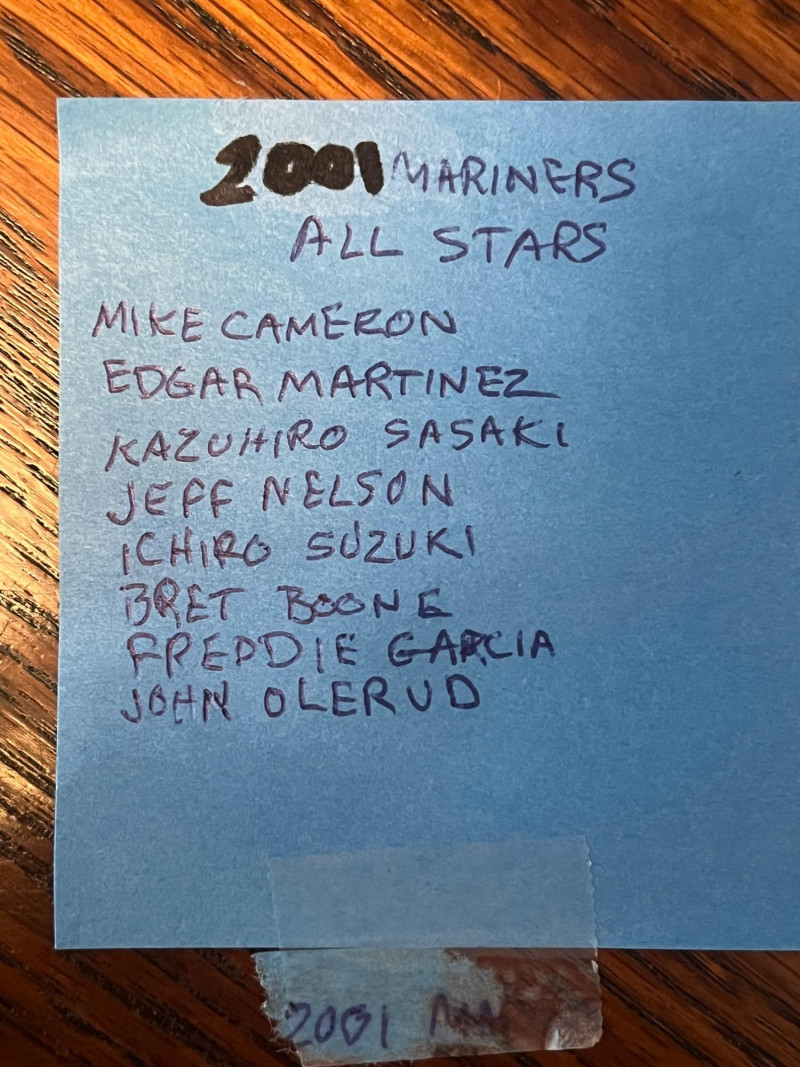 2001 MARINERS
ALL STARS
MIKE CAMERON
EDGAR MARTINEZ
KAZUHIRO SASAKI
JEFF NELSON
ICHIRO SUZUKI
BRET BOONE
FREDDIE GARCIA
JOHN OLERUD
2001